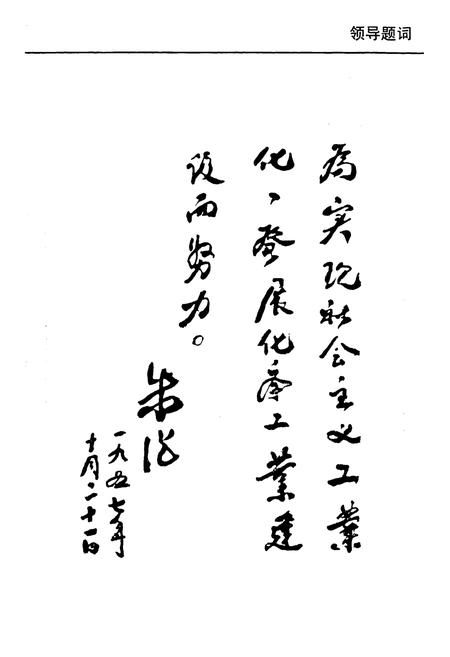 领导题词
为实现社会主义工业
化、發展化学工業建
设而努力。
朱德
一九五七年
十月二十一日